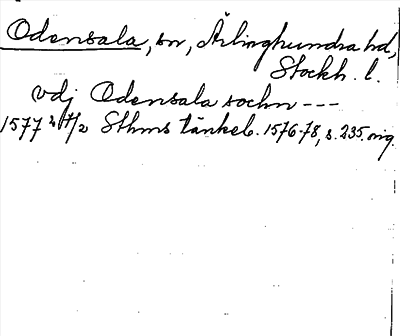 Odensala, sn, Ärlinghundra hd,
Stockh. l.
vdj Odensala sochn ---
1577 24/2 Sthms tänkeb. 1576-78, s. 235. orig.